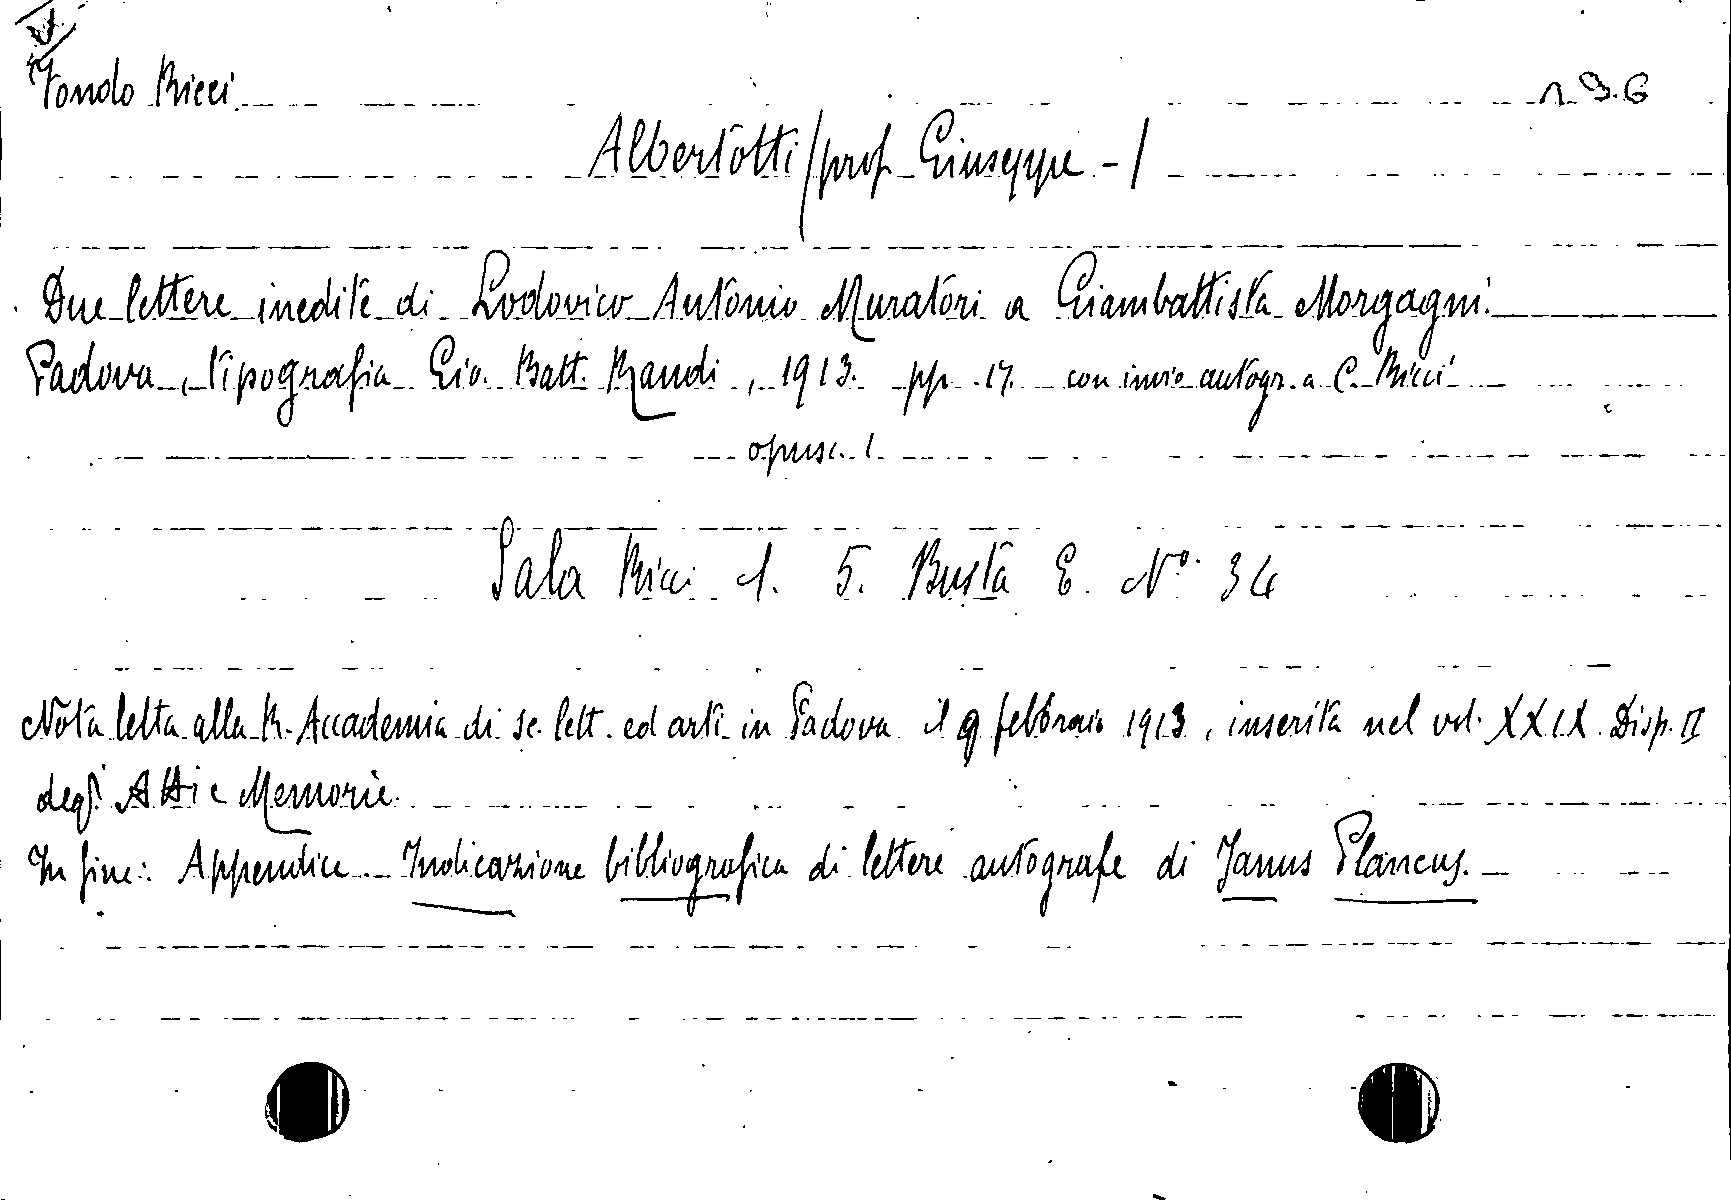 Fondo Ricci
196
Albertotti / prof. Giuseppe - /
Due lettere inedite di Lodovico Antonio Muratori a Giambattista Morgagni.
Padova, tipografia Gio. Batt. Randi, 1913. pp. 17. con invio autogr. a C. Ricci
opusc. 1
Sala Ricci 1. 5. Busta E. Nº. 34
Nota letta alla R. Accademia di sc. lett. ed arti in Padova il 9 febbraio 1913, inserita nel vol. XXIX. Disp. II
degli Atti e Memorie.
In fine: Appendice. Indicazione bibliografica di lettere autografe di Janus Plancus.